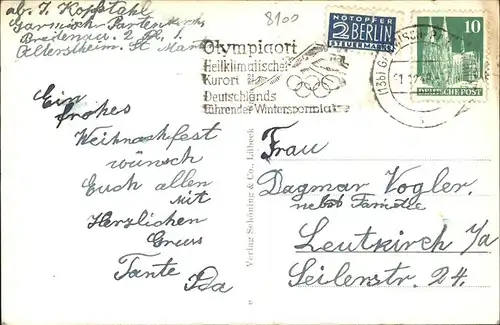 abs. I. Kopftahl
Garmisch-Partenkirch
Breitenau 2 R, 1
Altersheim. St Mart
8100
Olympiaort
Heilklimatischer
Kurort
Deutschlands
führender Wintersportplatz
NOTOPFER
2 BERLIN
STEUERMARKE
(13b) GARMISCH-P
10
DEUTSCHE POST
Ein
frohes
Weihnachtfest
wünsch
Euch allen
Mit
Herzlichen
Gruss
Tante Ida
Verlag Schöning & Co., Lübeck
Frau
Dagmar Vogler.
nebst Familie
Leutkirch i/a
Seilenstr. 24.